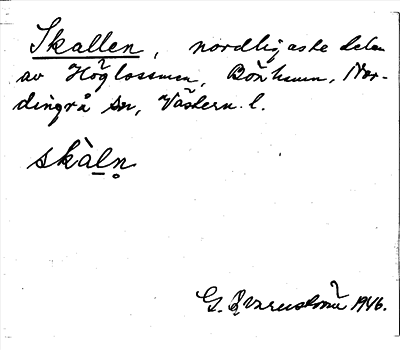 Skallen, nordligaste delen
av Höglosmen, Bönhamn, Nor-
dingrå sn, Västern. l.
skàln̥
G. Qvarnström 1946.